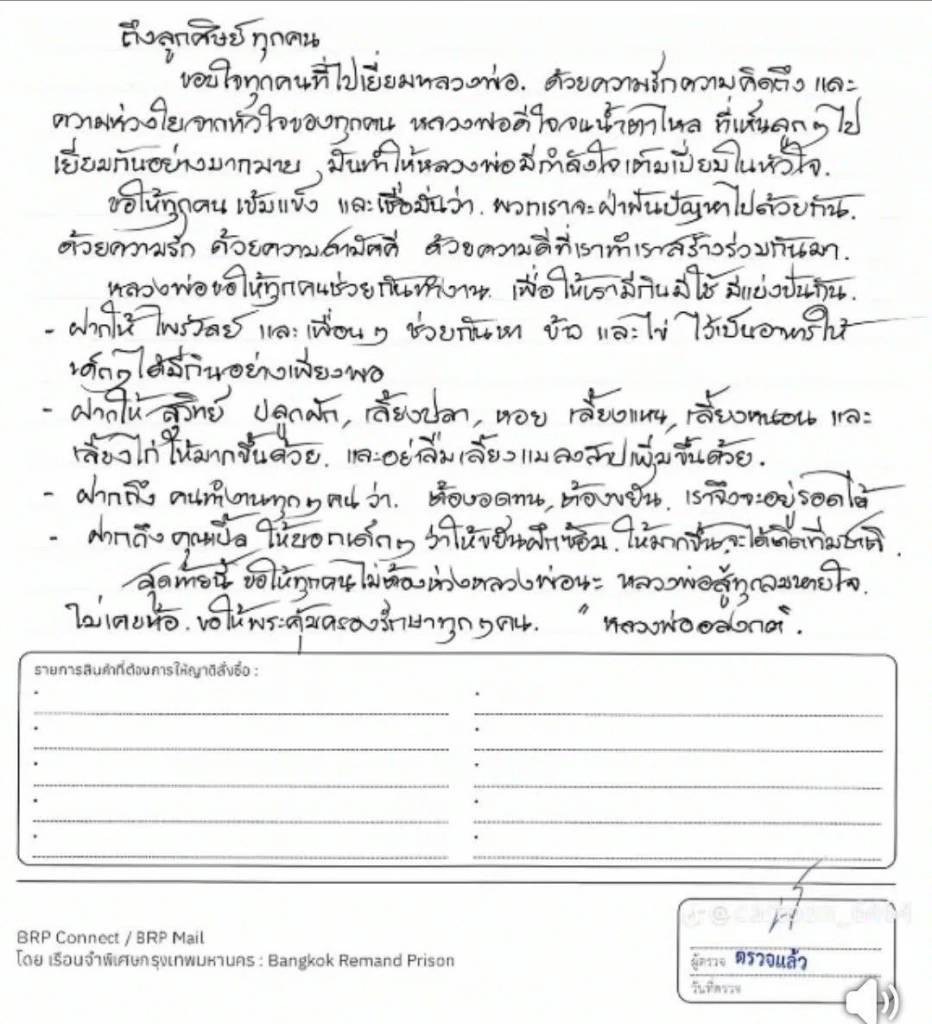 ถึงลูกศิษย์ทุกคน
ขอบใจทุกคนที่ไปเยี่ยมหลวงพ่อ. ด้วยความรักความคิดถึง และ
ความห่วงใยจากหัวใจของทุกคน หลวงพ่อดีใจจนน้ำตาไหล ที่เห็นลูกๆไป
เยี่ยมกันอย่างมากมาย มันทำให้หลวงพ่อมีกำลังใจเต็มเปี่ยมในหัวใจ.
ขอให้ทุกคน เข้มแข็ง และเชื่อมั่นว่า. พวกเราจะฝ่าฟันปัญหาไปด้วยกัน.
ด้วยความรัก ด้วยความสามัคคี ด้วยความดีที่เราทำเราสร้างร่วมกันมา.
หลวงพ่อขอให้ทุกคนช่วยกันทำงาน. เพื่อให้เรามีกินมีใช้ มีแบ่งปันกัน.
- ฝากให้ ไพรวัลย์ และ เพื่อนๆ ช่วยกันหา ข้าว และไข่ ไว้เป็นอาหารให้
เด็กๆได้มีกินอย่างเพียงพอ
- ฝากให้ สุวิทย์ ปลูกผัก, เลี้ยงปลา, หอย เลี้ยงแหน, เลี้ยงหนอน และ
เลี้ยงไก่ให้มากขึ้นด้วย. และอย่าลืมเลี้ยงแมลงสาปเพิ่มขึ้นด้วย.
- ฝากถึง คนทำงานทุกๆคนว่า. ต้องอดทน, ต้องขยัน. เราจึงจะอยู่รอดได้
- ฝากถึง คุณเปิ้ล ให้บอกเด็กๆ ว่าให้ขยันฝึกซ้อม ให้มากขึ้น จะได้ติดทีมชาติ.
สุดท้ายนี้ ขอให้ทุกคนไม่ต้องห่วงหลวงพ่อนะ หลวงพ่อสู้ทุกลมหายใจ.
ไม่เคยท้อ. ขอให้พระคุ้มครองรักษาทุกๆคน. " หลวงพ่ออลงกต.
รายการสินค้าที่ต้องการให้ญาติสั่งซื้อ :
BRP Connect / BRP Mail
โดย เรือนจำพิเศษกรุงเทพมหานคร : Bangkok Remand Prison
ผู้ตรวจ ตรวจแล้ว
วันที่ตรวจ